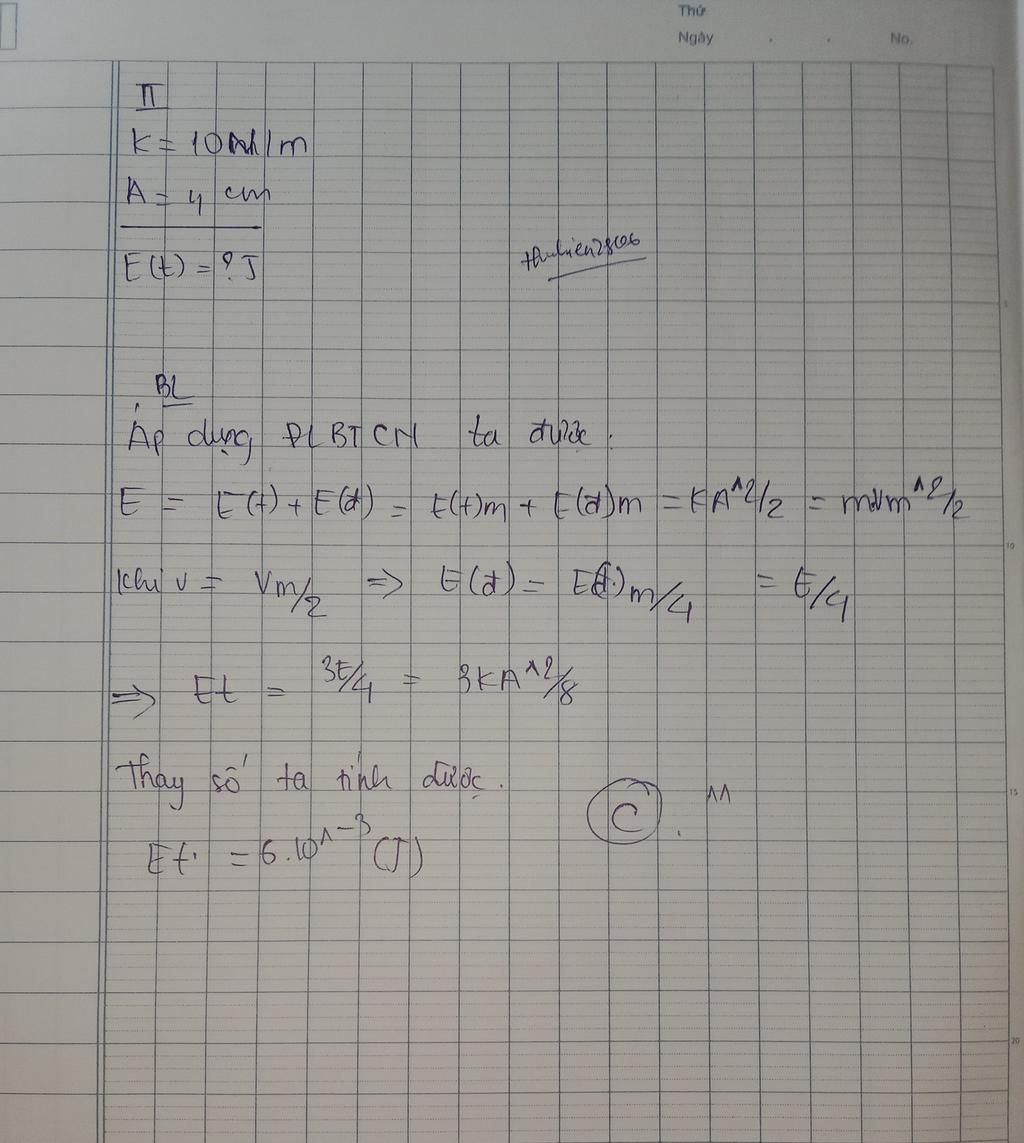 Thứ
Ngày . . No.
II
K = 10 N/m
A = 4 cm
E(t) = ? J
thuhien28606
BL
Áp dụng ĐLBTCN ta được.
E = E(t) + E(đ) = E(t)m + E(đ)m = KA^2/2 = mvm^2/2
Khi v = Vm/2 => E(đ) = E(đ)m/4 = E/4
=> Et = 3E/4 = 3KA^2/8
Thay số ta tính được.
Et = 6.10^-3 (J)
C . ^^
5
10
15
20